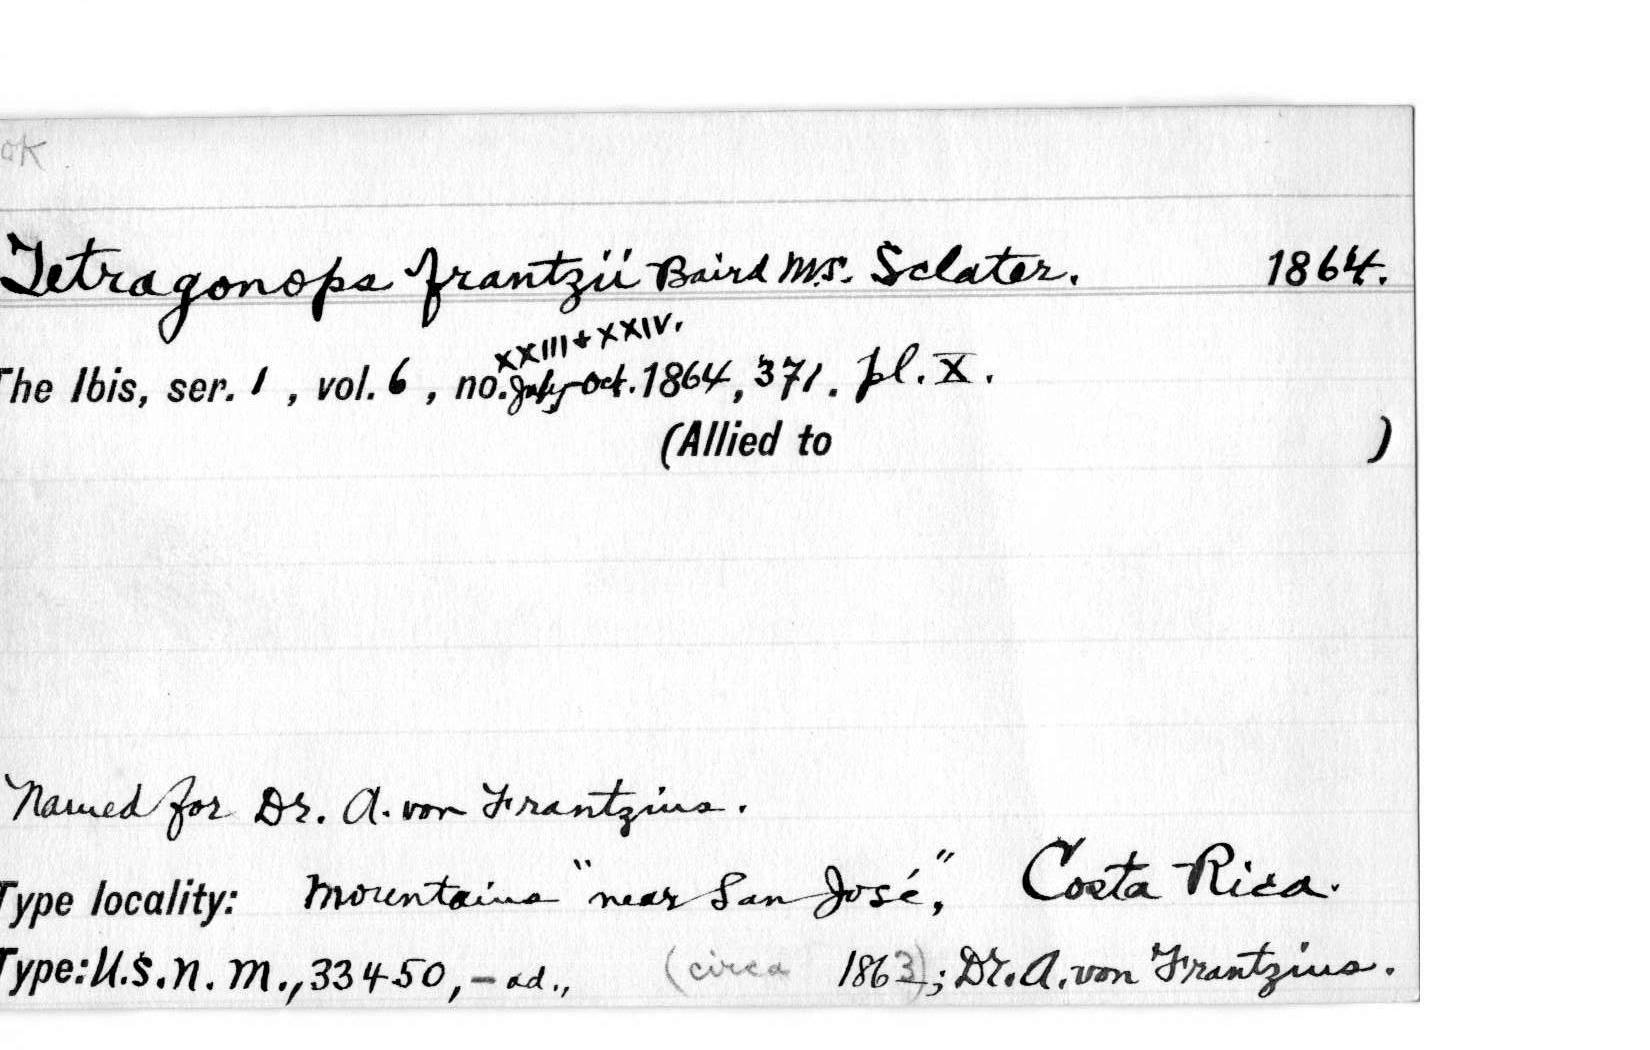 ok
Tetragonops frantzii Baird MS. Sclater. 1864.
XXIII + XXIV.
The Ibis, ser. 1, vol. 6, no. July-Oct. 1864, 371. pl. X.
(Allied to )
Named for Dr. A. von Frantzius.
Type locality: Mountains "near San José," Costa Rica.
Type: U.S.N.M., 33450, - ad., (circa 1863); Dr. A. von Frantzius.